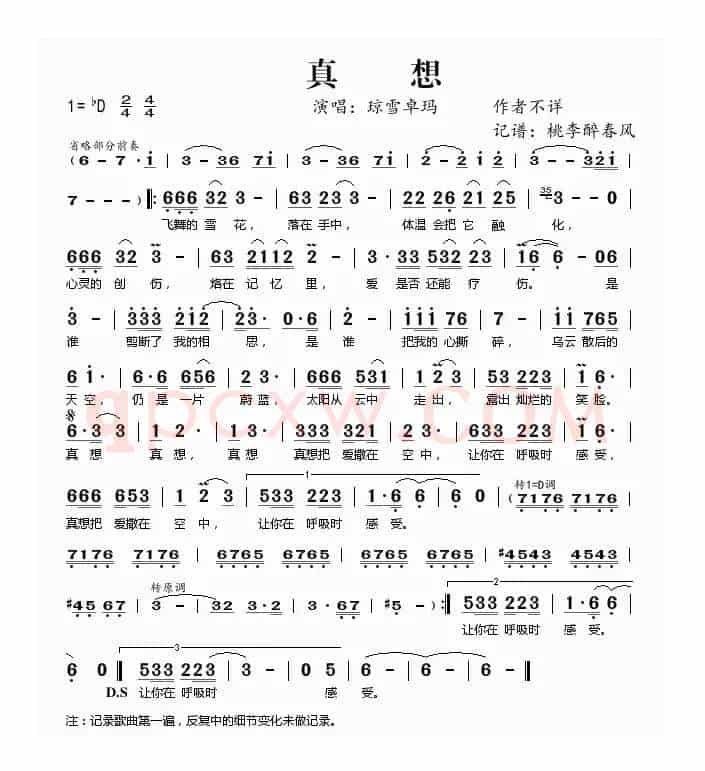 真 想
1=♭D 2/4 4/4 演唱：琼雪卓玛 作者不详
记谱：桃李醉春风
省略部分前奏
(6 - 7·i | 3 - 36 7i | 3·6 7i | 2 - 2i 2 | 3 - - - | 3 - - 32i |
7 - - - ) ‖: 666 32 3 - | 63 23 3 - | 22 26 21 25 | 35 3 - - 0 |
飞舞的 雪 花， 落在 手中， 体温 会把 它 融 化，
666 32 3 - | 63 2112 2 - | 3·33 532 23 | 16 6 - 06 |
心灵的 创 伤， 烙在 记 忆 里， 爱 是否 还能 疗 伤。 是
3 - | 333 212 | 23 0·6 | 2 - | 111 76 | 5 - | 5 0765 |
谁 剪断了 我的相 思， 是 谁 把我的 心撕 碎， 乌云 散后的
6 1· | 6·6 656 | 2 3· | 666 531 | 1 2 3 | 533 2231 | 1 6· |
天 空， 仍 是 一片 蔚 蓝， 太阳从 云中 走 出， 露出 灿烂的 笑 脸。
6·3 3 | 6·7 6 | 333 321 | 2 2· | 633 2231 | 1·6 6 |
真 想 真 想， 真想把 爱撒在 空 中， 让你在 呼吸时 感 受，
666 653 | 1 2 3 | 533 223 | 1·6 6 | 6 0 | (7176 7176 |
真想把 爱撒在 空 中， 让你在 呼吸时 感 受。
1
转1=D调
7176 7176 | 6765 6765 | 6765 6765 | #4543 4543 |
转原调
#45 67 | 3 - | 32 3·2 | 3·67 | #5 - ) :‖ 533 223 | 1·6 6 |
2
让你在 呼吸时 感 受。
3
6 0 ‖ 533 223 | 3 - | 0 5 | 6 - | 6 - | 6 - ‖
D.S 让你在 呼吸时 感 受。
注：记录歌曲第一遍，反复中的细节变化未做记录。
qpcxw.com